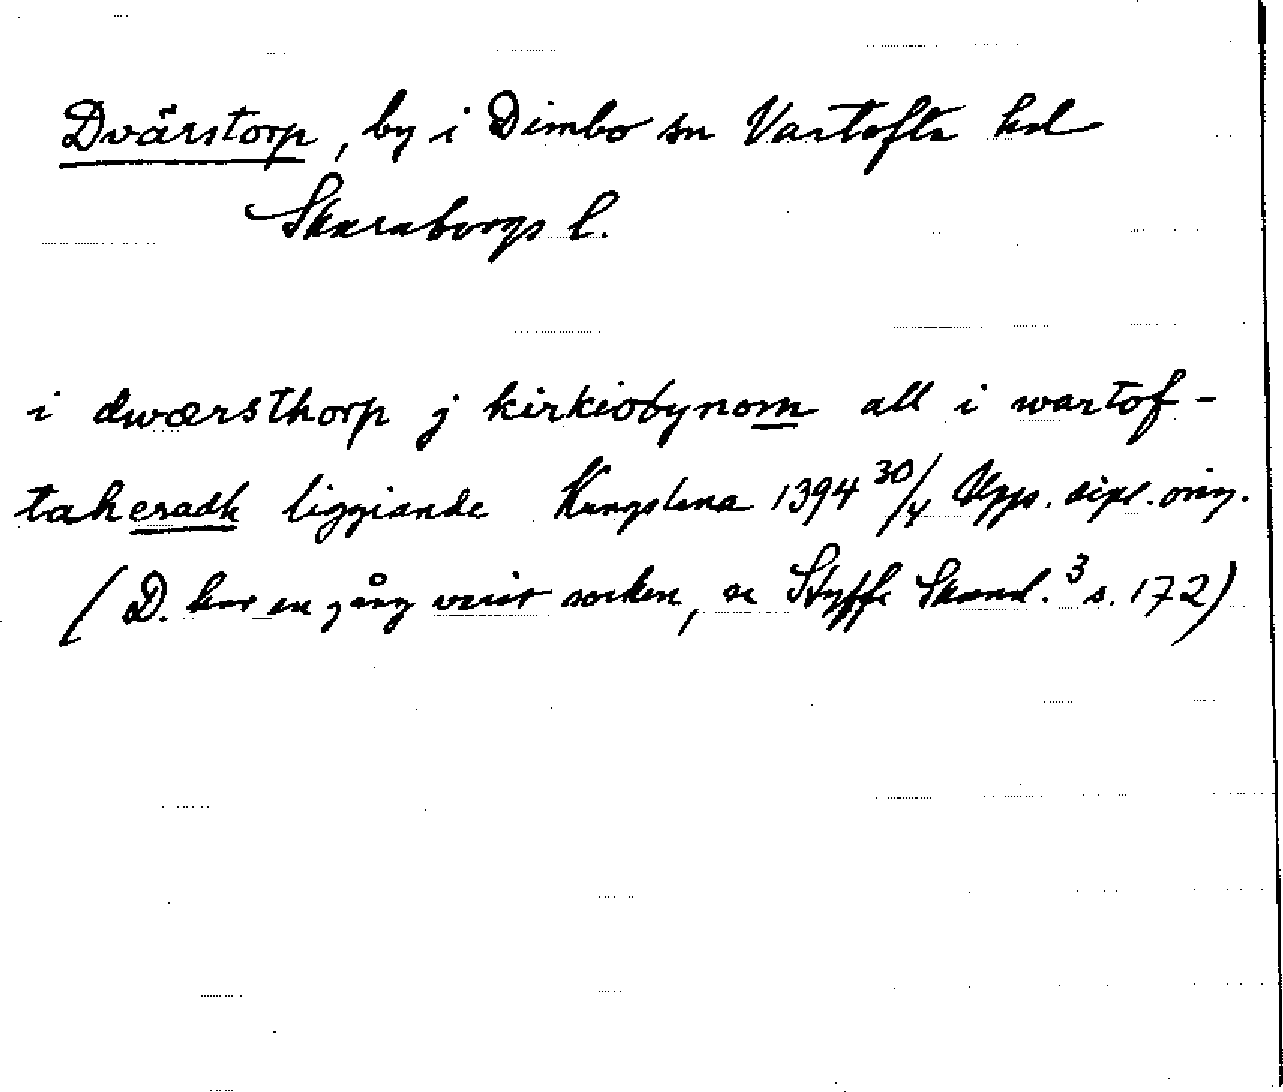 Dvärstorp, by i Dimbo sn Vartofta hd
Skaraborgs l.
i dwærsthorp j kirkiobynom all i wartof-
taheradh liggiande Kungslena 1394 30/4 Upps. dipl. orig.
(D. har en gång varit socken, se Styffe Skand.3 s. 172)